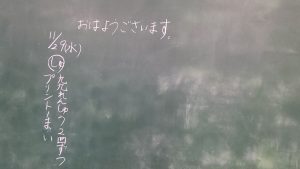 おはようございます。
11/29(水)
しゅ 九九れんしゅう2回ずつ
プリント1まい